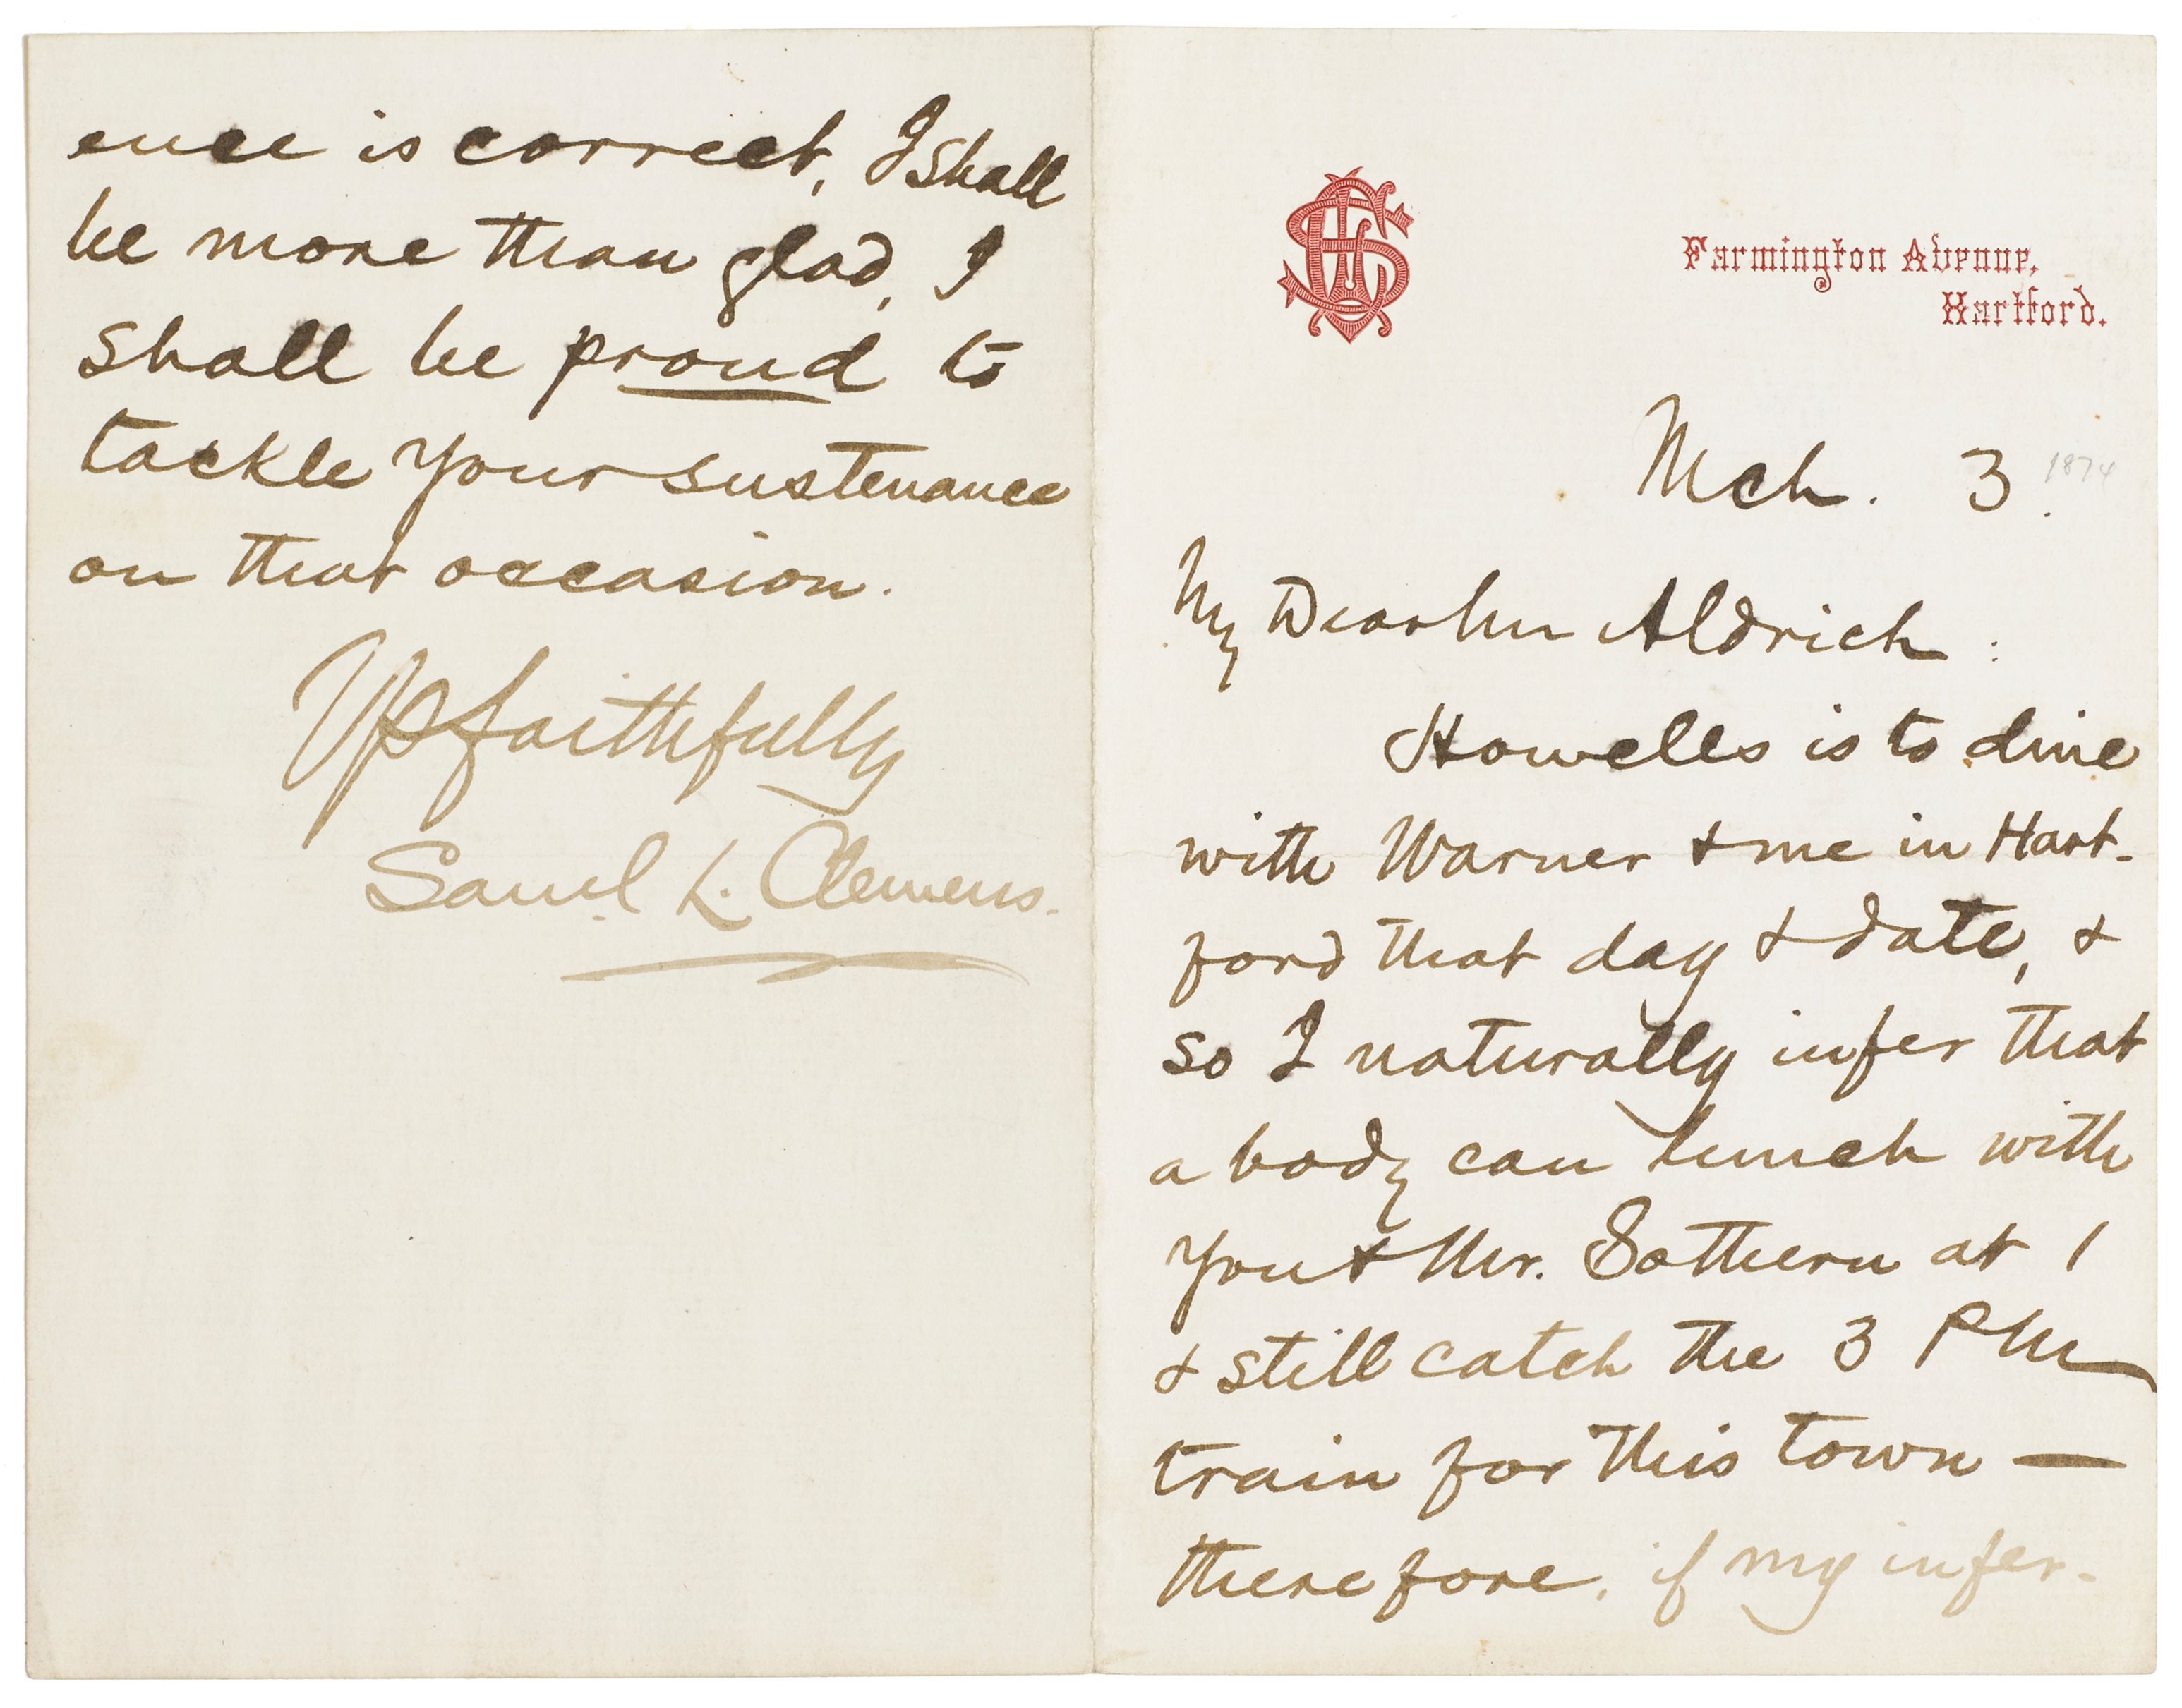 Farmington Avenue,
Hartford.
Mch. 3. 1874
My Dear Mr Aldrich:
Howells is to dine
with Warner & me in Hart-
ford that day & date, &
so I naturally infer that
a body can lunch with
you & Mr. Sothern at 1
& still catch the 3 PM
train for this town —
therefore, if my infer-
ence is correct, I shall
be more than glad, I
shall be proud to
tackle your sustenance
on that occasion.
Yrs faithfully
Saml. L. Clemens.